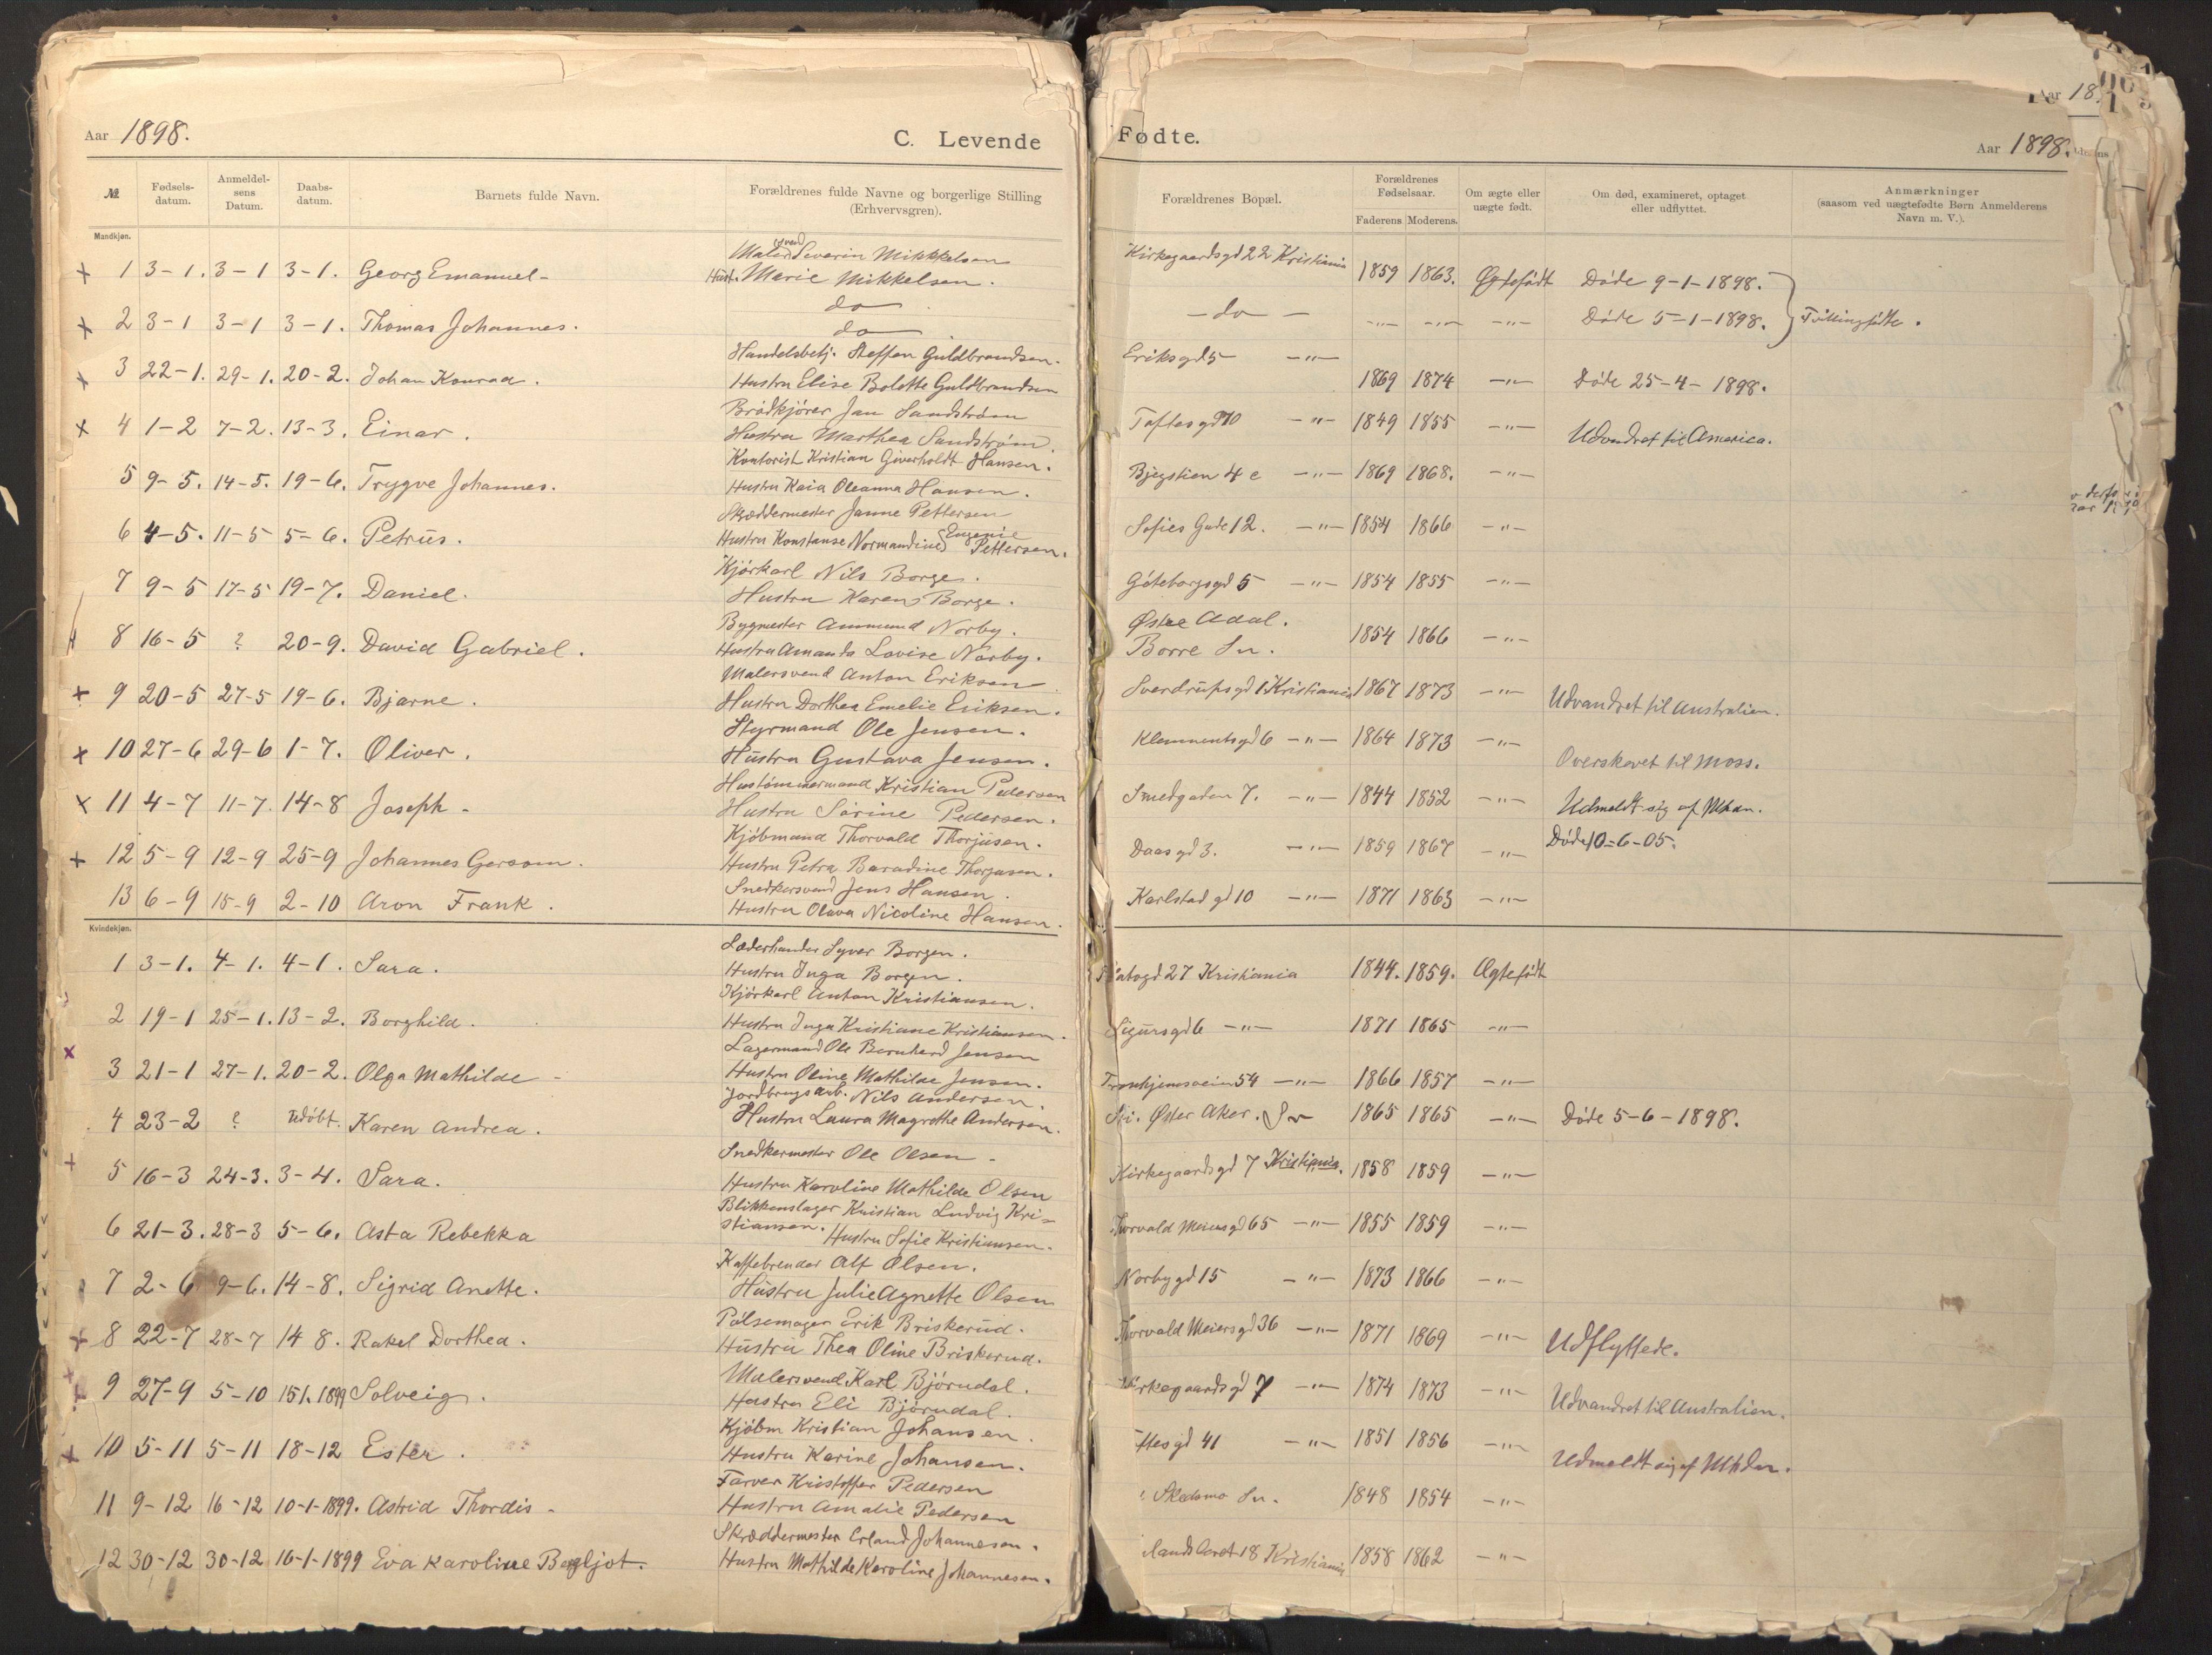 Aar 1898.
C. Levende
Fødte.
Aar 1898.
Aar 18
№
Fødsels-
datum.
Anmeldel-
sens
Datum.
Daabs-
datum.
Barnets fulde Navn.
Forældrenes fulde Navne og borgerlige Stilling
(Erhvervsgren).
Forældrenes Bopæl.
Forældrenes
Fødselsaar.
Faderens Moderens.
Om ægte eller
uægte født.
Om død, examineret, optaget
eller udflyttet.
Anmærkninger
(saasom ved uægtefødte Børn Anmelderens
Navn m. V.).
Mandkjøn.
Malersvend Severin Mikkkelsen Kirkegaardsgd 22 Kristiania
+ 1 3-1. 3-1 3-1. Georg Emanuel- Hust. Marie Mikkelsen. 1859 1863. Ægtefødt Døde 9-1-1898.
do
+ 2 3-1 3-1 3-1. Thomas Johannes. do -do- -"- -"- -"- Døde 5-1-1898. Tvillingfødte.
Handelsbetj. Steffen Guldbrandsen. Eriksgd 5 -"-
+ 3 22-1. 29-1. 20-2. Johan Konrad. Hustru Elise Bolette Guldbrandsen 1869 1874 -"- Døde 25-4-1898.
Brødkjører Jan Sandstrøm
x 4 1-2 7-2. 13-3. Einar. Hustru Marthea Sandstrøm. Toftesgd 10 -"- 1849 1855 -"- Udvandret til America.
Kontorist Kristian Giverholdt Hansen.
5 9-5. 14-5. 19-6. Trygve Johannes. Hustru Kaia Oleanna Hansen. 4 c -"- 1869 1868. -"-
Skræddermester Janne Pettersen
6 4-5. 11-5 5-6. Petrus. Hustru Konstanse Normandine Eugenie Pettersen. Sofies Gade 12. -"- 1854 1866 -"-
Kjørkarl Nils Borge.
7 9-5 17-5 19-7. Daniel. Hustru Karen Borge. Gøteborgsgd 5 -"- 1854 1855 -"-
Bygmester Ammund Norby. Østre Adal.
8 16-5 ? 20-9. David Gabriel. Hustru Amanda Lovise Norby. Borre Sn. 1854 1866 -"-
Malersvend Anton Eriksen
+ 9 20-5 27-5 19-6. Bjarne. Hustru Dorthea Emelie Eriksen. Sverdrupsgd 1 Kristiania 1867 1873 -"- Udvandret til Australien.
Styrmand Ole Jensen.
x 10 27-6 29-6 1-7. Oliver. Hustru Gustava Jensen. Klemmentsgd 6 -"- 1864 1873 -"- Overskevet til Moss.
Hustømmermand Kristian Pedersen
x 11 4-7 11-7. 14-8 Joseph - Hustru Sørine Pedersen. Smedgaden 7. -"- 1844 1852 -"- Udmeldt sig af Mhdn.
Kjøbmand Thorvald Thorjusen.
+ 12 5-9 12-9 25-9 Johannes Gersom. Hustru Petra Baradine Thorjusen. Daasgd 3. -"- 1859 1867 -"- Døde 10-6-05.
Snedkersvend Jens Hansen.
13 6-9 15-9 2-10 Aron Frank. Hustru Olava Nicoline Hansen. Karlstadgd 10 -"- 1871 1863 -"-
Kvindekjøn.
Læderhandler Syver Borgen.
1 3-1. 4-1. 4-1. Sara. Hustru Inga Borgen. 27 Kristiania 1844. 1859. Ægtefødt
Kjørkarl Anton Kristiansen.
2 19-1 25-1. 13-2. Borghild. Hustru Inga Kristiane Kristiansen. Sigursgd 6 -"- 1871 1865 -"-
Lagermand Ole Bernhard Jensen
x 3 21-1 27-1. 20-2. Olga Mathilde - Hustru Oline Mathilde Jensen. Tronhjemsveien 54 -"- 1866 1857 -"-
Jordbrugsarb. Nils Andersen.
4 23-2 ? Udøbt. Karen Andrea. Hustru Laura Magrethe Andersen. Øster Aker. Sn 1865 1865 -"- Døde 5-6-1898.
Snedkermester Ole Olsen -
+ 5 16-3 24-3. 3-4. Sara. Hustru Karoline Mathilde Olsen Kirkegaardsgd 7 Kristiania. 1858 1859 -"-
Blikkenslager Kristian Ludvig Kri-
6 21-3. 28-3 5-6. Asta Rebekka stiansen. Hustru Sofie Kristiansen. Thorvald Meiersgd 65 -"- 1855 1859 -"-
Kaffebrender Alf Olsen.
7 2-6 9-6. 14-8. Sigrid Anette. Hustru Julie Agnette Olsen Norbygd 15 -"- 1873 1866 -"-
Pølsemager Erik Briskerud.
+ 8 22-7 28-7 14 8. Rakel Dorthea. Hustru Thea Oline Briskerud. Thorvald Meiersgd 36 -"- 1871 1869 -"- Udflyttede.
Malersvend Karl Bjørndal.
+ 9 27-9 5-10 15 1. 1899 Solveig. Hustru Eli Bjørndal. Kirkegaardsgd 7 -"- 1874 1873 -"- Udvandret til Australien.
Kjøbm Kristian Johansen.
+ 10 5-11 5-11 18-12 Ester. Hustru Karine Johansen. ftesgd 41 -"- 1851 1856 -"- Udmeldt sig af Mhdn.
Farver Kristoffer Pedersen
11 9-12 16-12 10-1-1899. Astrid Thordis - Hustru Amalie Pedersen Skedsmo Sn. 1848 1854 -"-
Skræddermester Erland Johannesen.
12 30-12 30-12 16-1-1899 Eva Karoline Bergljot. Hustru Mathilde Karoline Johannesen. 18 Kristiania 1858 1862 -"-